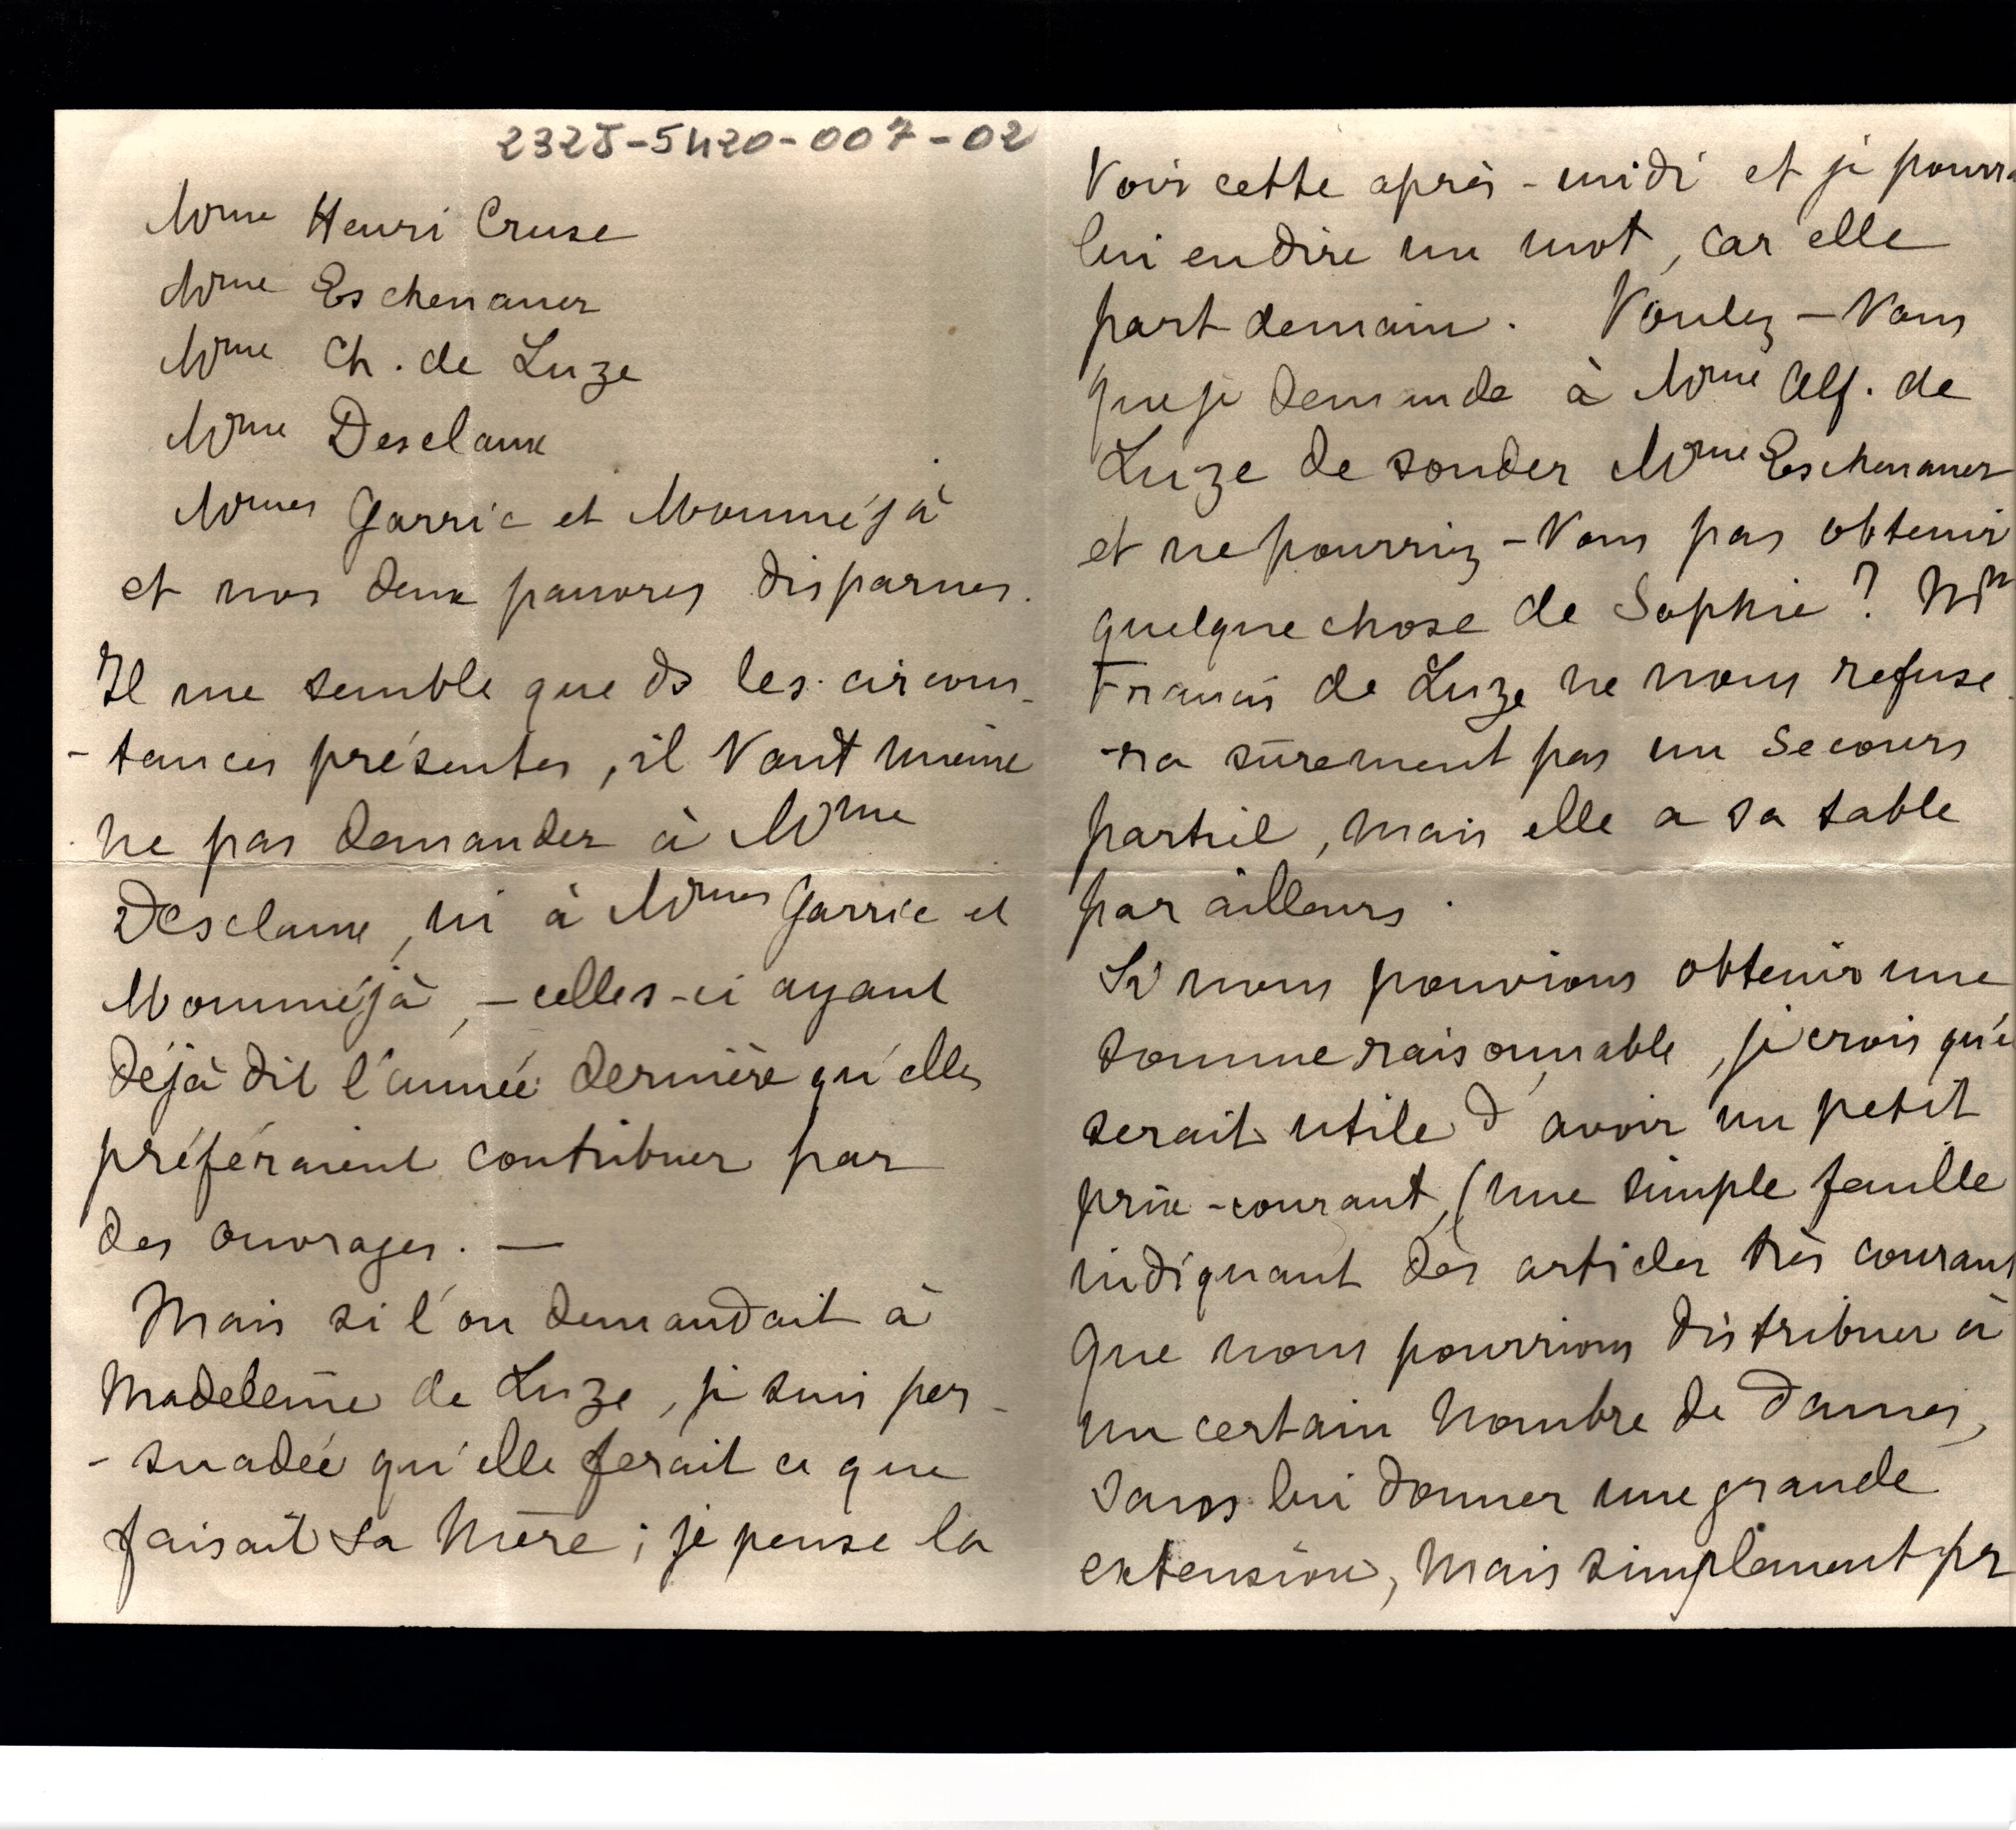 232J-5H20-007-02
Mme Henri Cruse
Mme Eschenauer
Mme Ch. de Luze
Mme Desclaux
Mmes Garric et Mommèjà
et nos deux pauvres disparues.
Il me semble que ds les circons-
-tances présentes, il vaut mieux
ne pas demander à Mme
Desclaux, ni à Mmes Garric et
Mommèjà, - celles-ci ayant
déjà dit l'année dernière qu'elles
préféraient contribuer par
des ouvrages. —
Mais si l'on demandait à
Madeleine de Luze, je suis per-
-suadée qu'elle ferait ce que
faisait sa Mère ; je pense la
Voir cette après-midi et je pourra
lui en dire un mot, car elle
part demain. Voulez-Vous
que je demande à Mme Alf. de
Luze de sonder Mme Eschenauer
et ne pourriez-Vous pas obtenir
quelque chose de Sophie ? Mm
Francis de Luze ne nous refuse
-ra sûrement pas un secours
partiel, mais elle a sa table
par ailleurs.
Si nous pouvions obtenir une
somme raisonnable, je crois qu'i
serait utile d'avoir un petit
prix-courant, (une simple feuille
indiquant des articles très courant
que nous pourrions distribuer à
un certain nombre de dames,
sans lui donner une grande
extension, mais simplement pr